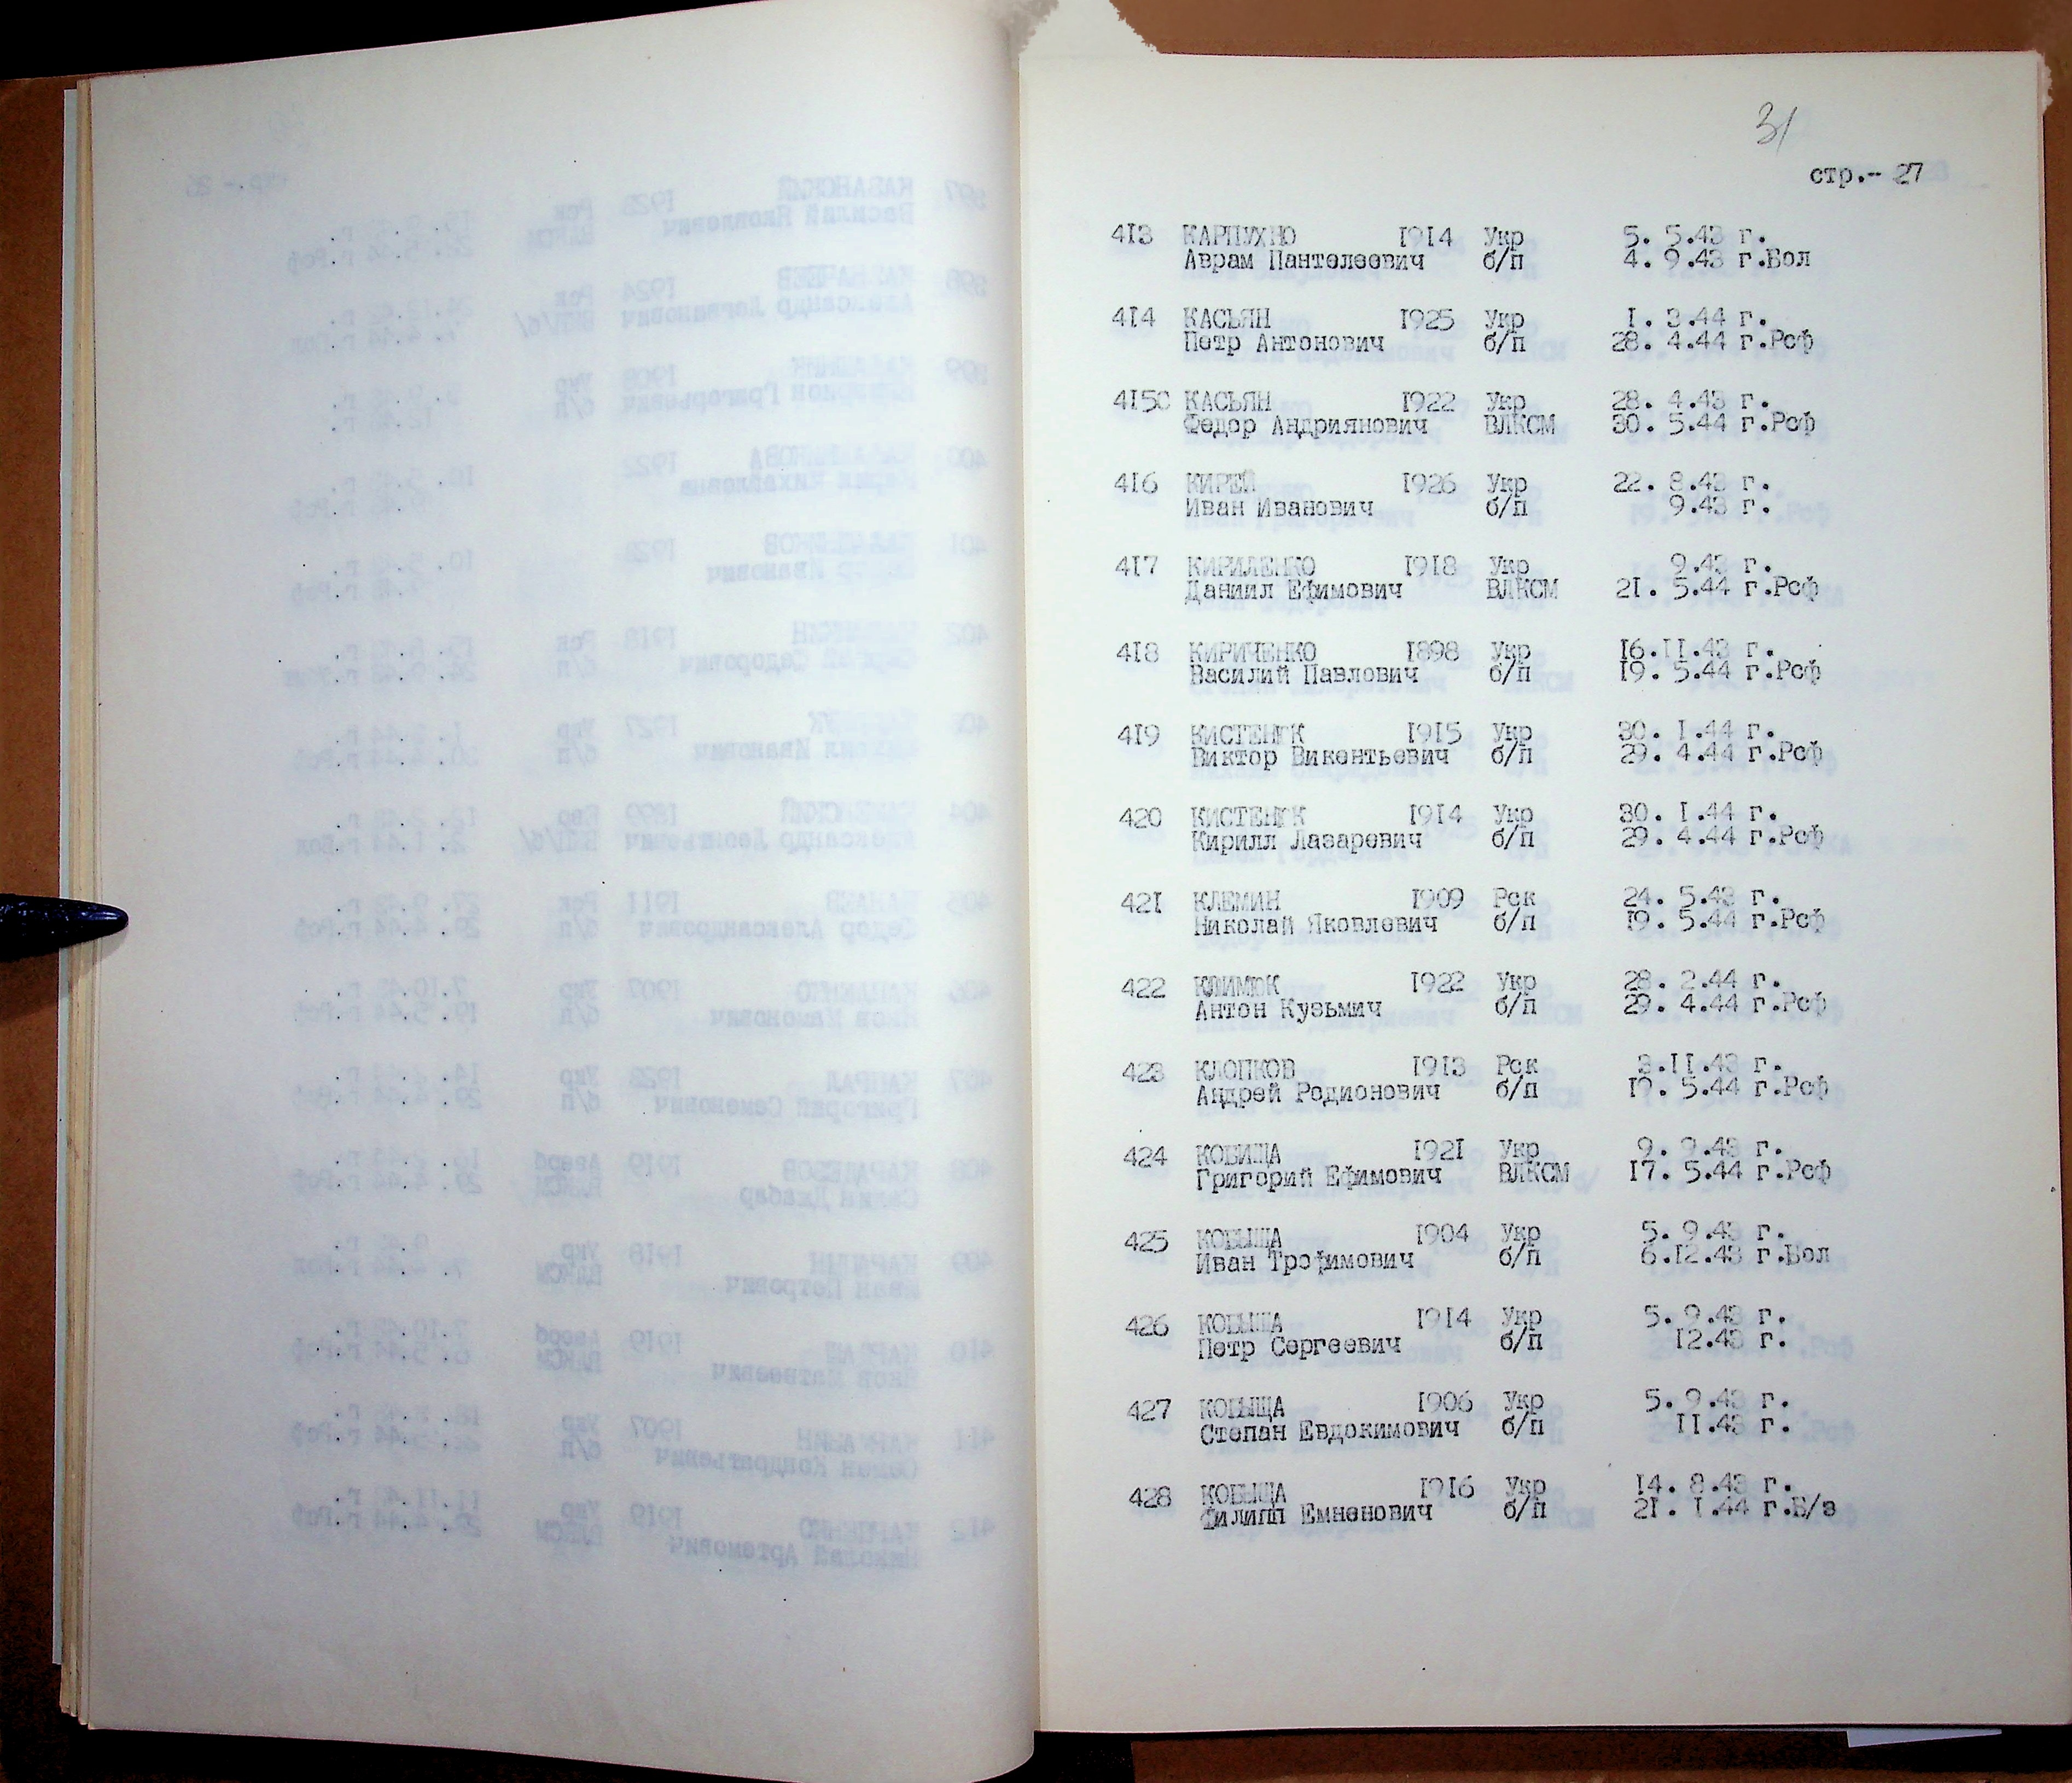 31
стр.- 27
413 КАРПУХНО 1914 Укр 5. 5.43 г.
Аврам Пантелеевич б/п 4. 9.43 г.Бол
414 КАСЬЯН 1925 Укр 1. 3.44 г.
Петр Антонович б/п 28. 4.44 г.Рсф
415 КАСЬЯН 1922 Укр 28. 4.43 г.
Федор Андриянович ВЛКСМ 30. 5.44 г.Рсф
416 КИРЕЙ 1926 Укр 22. 8.43 г.
Иван Иванович б/п 9.43 г.
417 КИРИЛЕНКО 1918 Укр 9.43 г.
Даниил Ефимович ВЛКСМ 21. 5.44 г.Рсф
418 КИРИЧЕНКО 1898 Укр 16.11.43 г.
Василий Павлович б/п 19. 5.44 г.Рсф
419 КИСТЕНЮК 1915 Укр 30. 1.44 г.
Виктор Викентьевич б/п 29. 4.44 г.Рсф
420 КИСТЕНЮК 1914 Укр 30. 1.44 г.
Кирилл Лазаревич б/п 29. 4.44 г.Рсф
421 КЛЕМИН 1909 Рск 24. 5.43 г.
Николай Яковлевич б/п 19. 5.44 г.Рсф
422 КЛИМЮК 1922 Укр 28. 2.44 г.
Антон Кузьмич б/п 29. 4.44 г.Рсф
423 КЛОПКОВ 1913 Рск 3.11.43 г.
Андрей Родионович б/п 19. 5.44 г.Рсф
424 КОБИЩА 1921 Укр 9. 9.43 г.
Григорий Ефимович ВЛКСМ 17. 5.44 г.Рсф
425 КОБЫЩА 1904 Укр 5. 9.43 г.
Иван Трофимович б/п 6.12.43 г.Бол
426 КОБЫЩА 1914 Укр 5. 9.43 г.
Петр Сергеевич б/п 12.43 г.
427 КОБЫЩА 1906 Укр 5. 9.43 г.
Степан Евдокимович б/п 11.43 г.
428 КОБЫЩА 1916 Укр 14. 8.43 г.
Филипп Емненович б/п 21. 1.44 г.Б/з